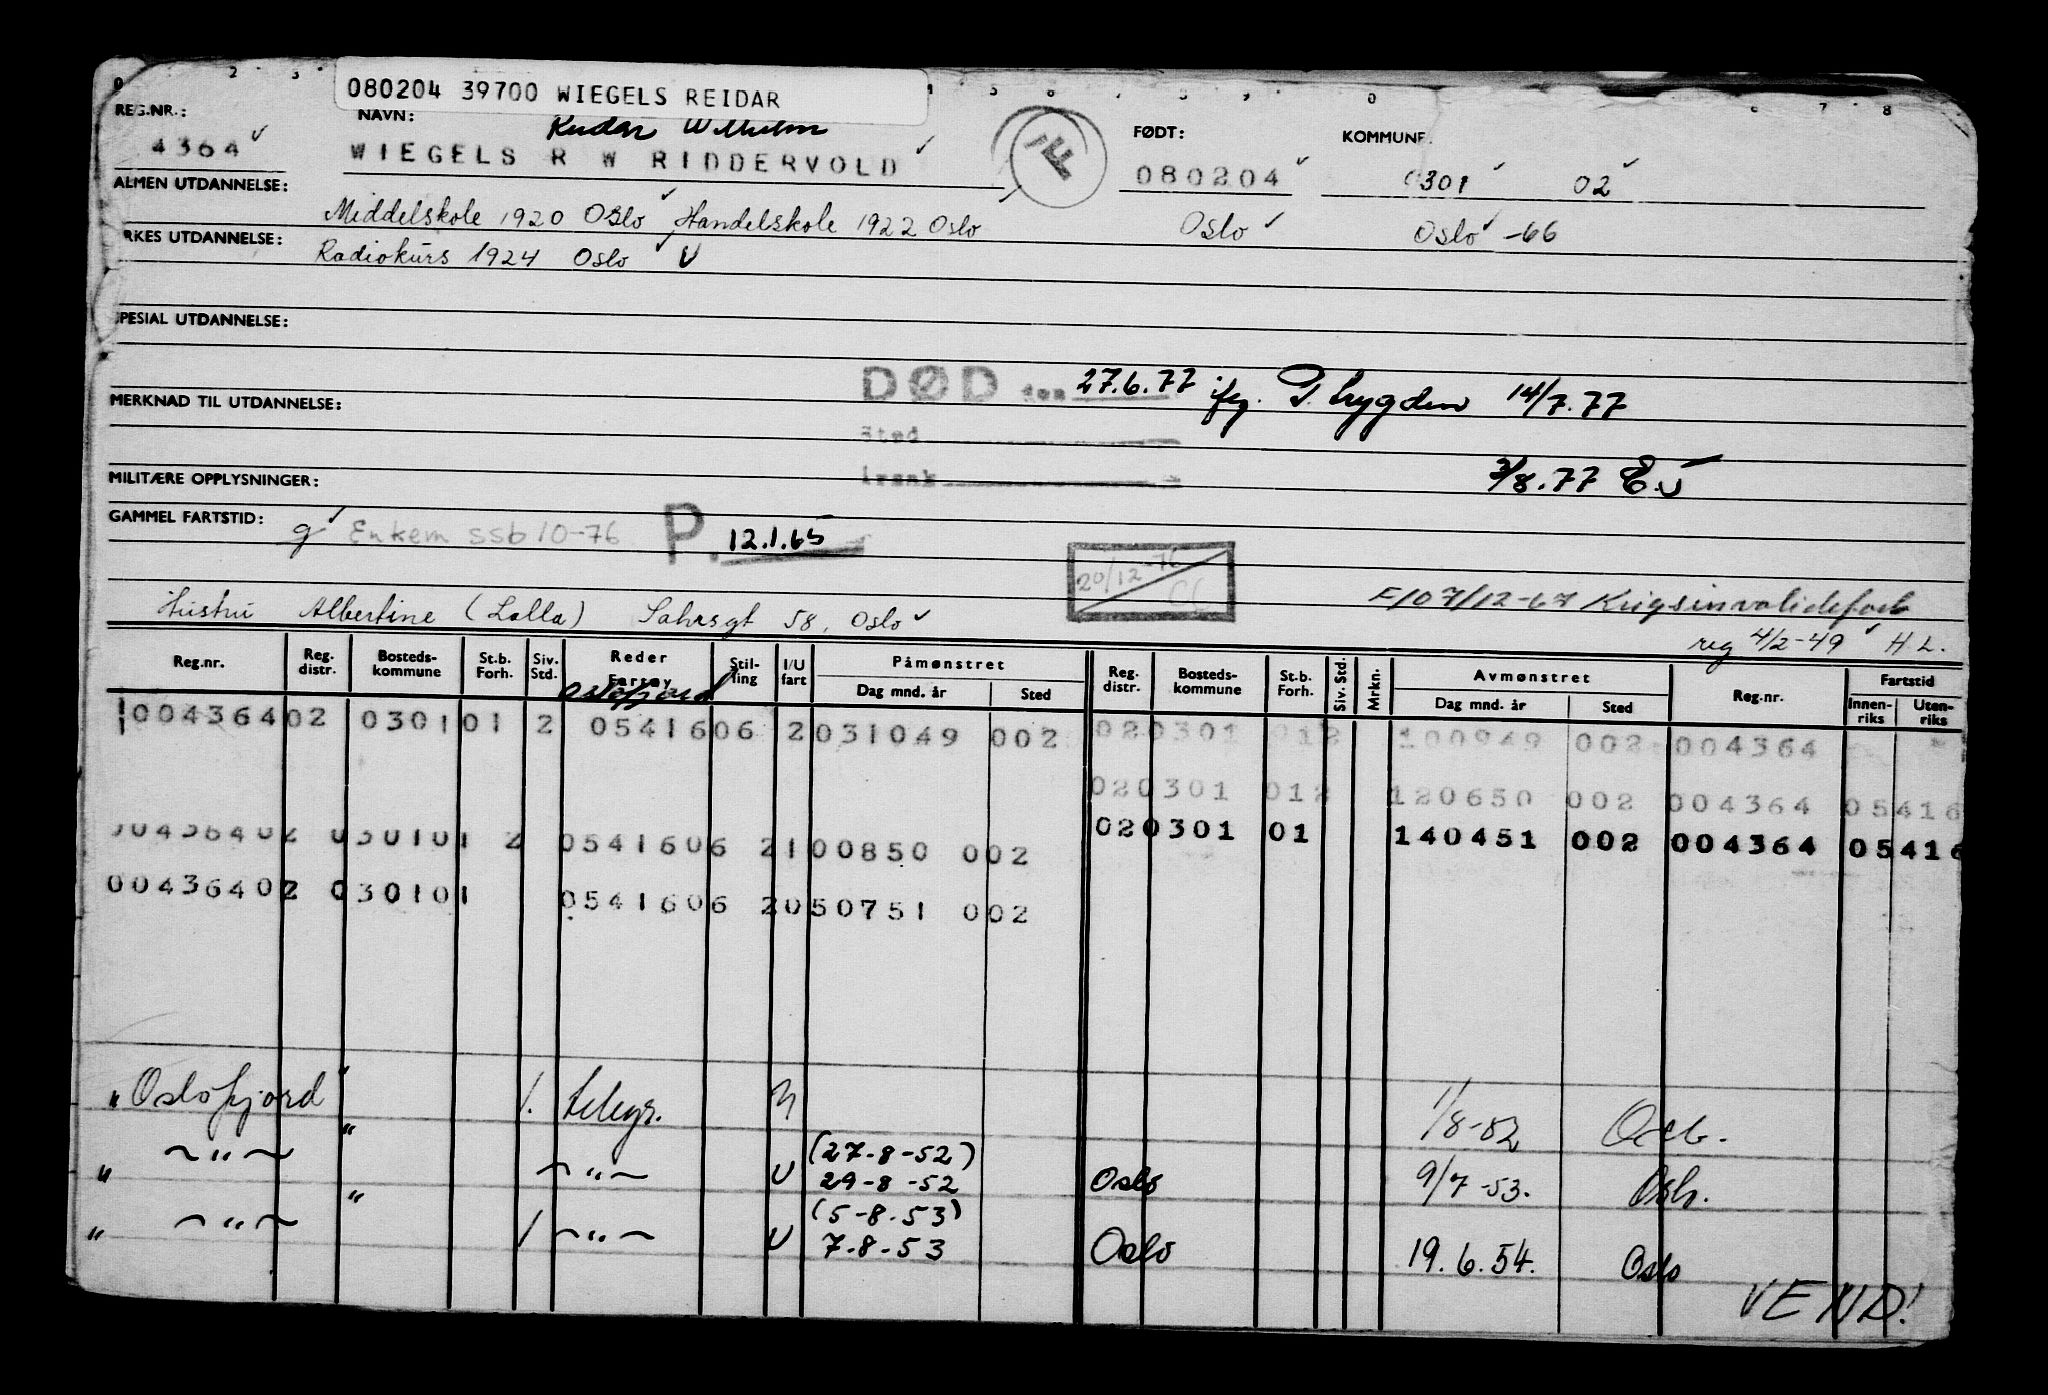 080204 39700 WIEGELS REIDAR
REG.NR.: NAVN: Reidar Wilhelm FØDT: KOMMUNE
4364 WIEGELS R W RIDDERVOLD 080204 0301 02
ALMEN UTDANNELSE: Middelskole 1920 Oslo Handelskole 1922 Oslo Oslo Oslo -66
RKES UTDANNELSE: Radiokurs 1924 Oslo
SPESIAL UTDANNELSE:
DØD den 27.6.77 ifg. Trygden 14/7.77
MERKNAD TIL UTDANNELSE:
Sted
årsak 3/8.77 E.J
MILITÆRE OPPLYSNINGER:
GAMMEL FARTSTID: g Enkem ssb 10-76 P. 12.1.65
20/12-76
Hustru Albertine (Lalla) Sahrsgt 58, Oslo
F/O 7/12-67 Krigsinvalideforb
reg 4/2-49 H L.
Reg.nr. Reg. distr. Bosteds-kommune St.b. Forh. Siv. Std. Reder Fartøy Stil-ling I/U fart Påmønstret Dag mnd. år Sted Reg. distr. Bosteds-kommune St.b. Forh. Siv. Std. Mrkn. Avmønstret Dag mnd. år Sted Reg.nr. Fartstid Innen-riks Uten-riks
Oslofjord
00436402 0301 01 2 0541606 2 031049 002 02 0301 01 2 100949 002 004364
02 0301 01 2 120650 002 004364 05416
00436402 0301 01 2 0541606 2 100850 002 02 0301 01 140451 002 004364 05416
00436402 0301 01 0541606 2 050751 002
" Oslofjord " 1. telegr. 1/8-52 Oslo.
" ~"~ " ~"~ U (27-8-52) 29-8-52 Oslo 9/7-53. Oslo.
" ~"~ " 1 ~"~ U (5-8.53) 7.8-53 Oslo 19.6.54. Oslo
VEND!